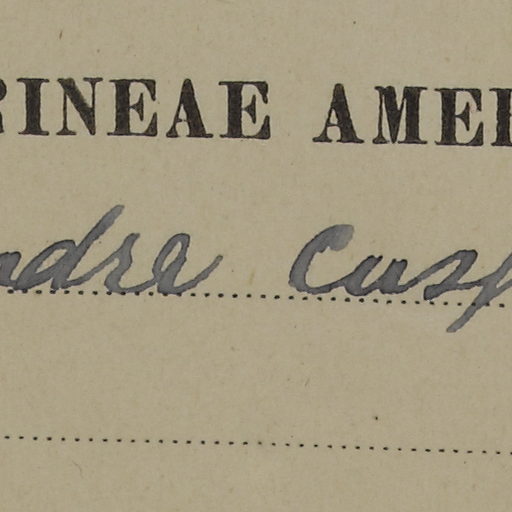 RINEAE AMER
ndre Cusp